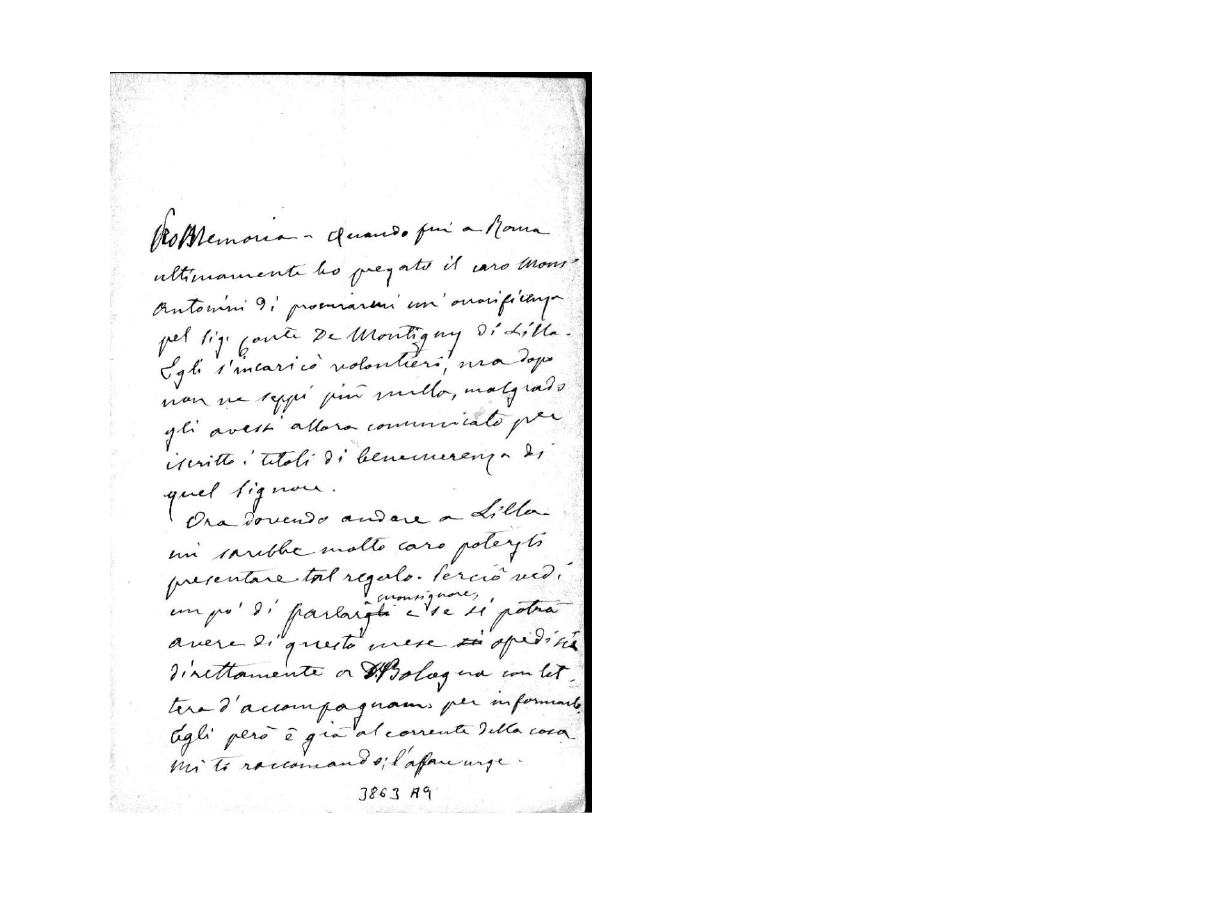 ProMemoria - Quando fui a Roma
ultimamente ho pregato il caro Mons.
Antonini di procurarmi un' onorificenza
pel Sig. Conte De Montigny di Lilla.
Egli s'incaricò volontieri, ma dopo
non ne seppi più nulla, malgrado
gli avessi allora comunicato per
iscritto i titoli di benemerenza di
quel Signore.
Ora dovendo andare a Lilla
mi sarebbe molto caro potergli
presentare tal regalo. Perciò vedi
un po' di parlargli a monsignore, e se si potrà
avere di questo mese si spedisca
direttamente a D. Bologna con let-
tera d'accompagnam. per informarlo.
Egli però è già al corrente della cosa
Mi ti raccomando; l'affare urge.
3863 A9